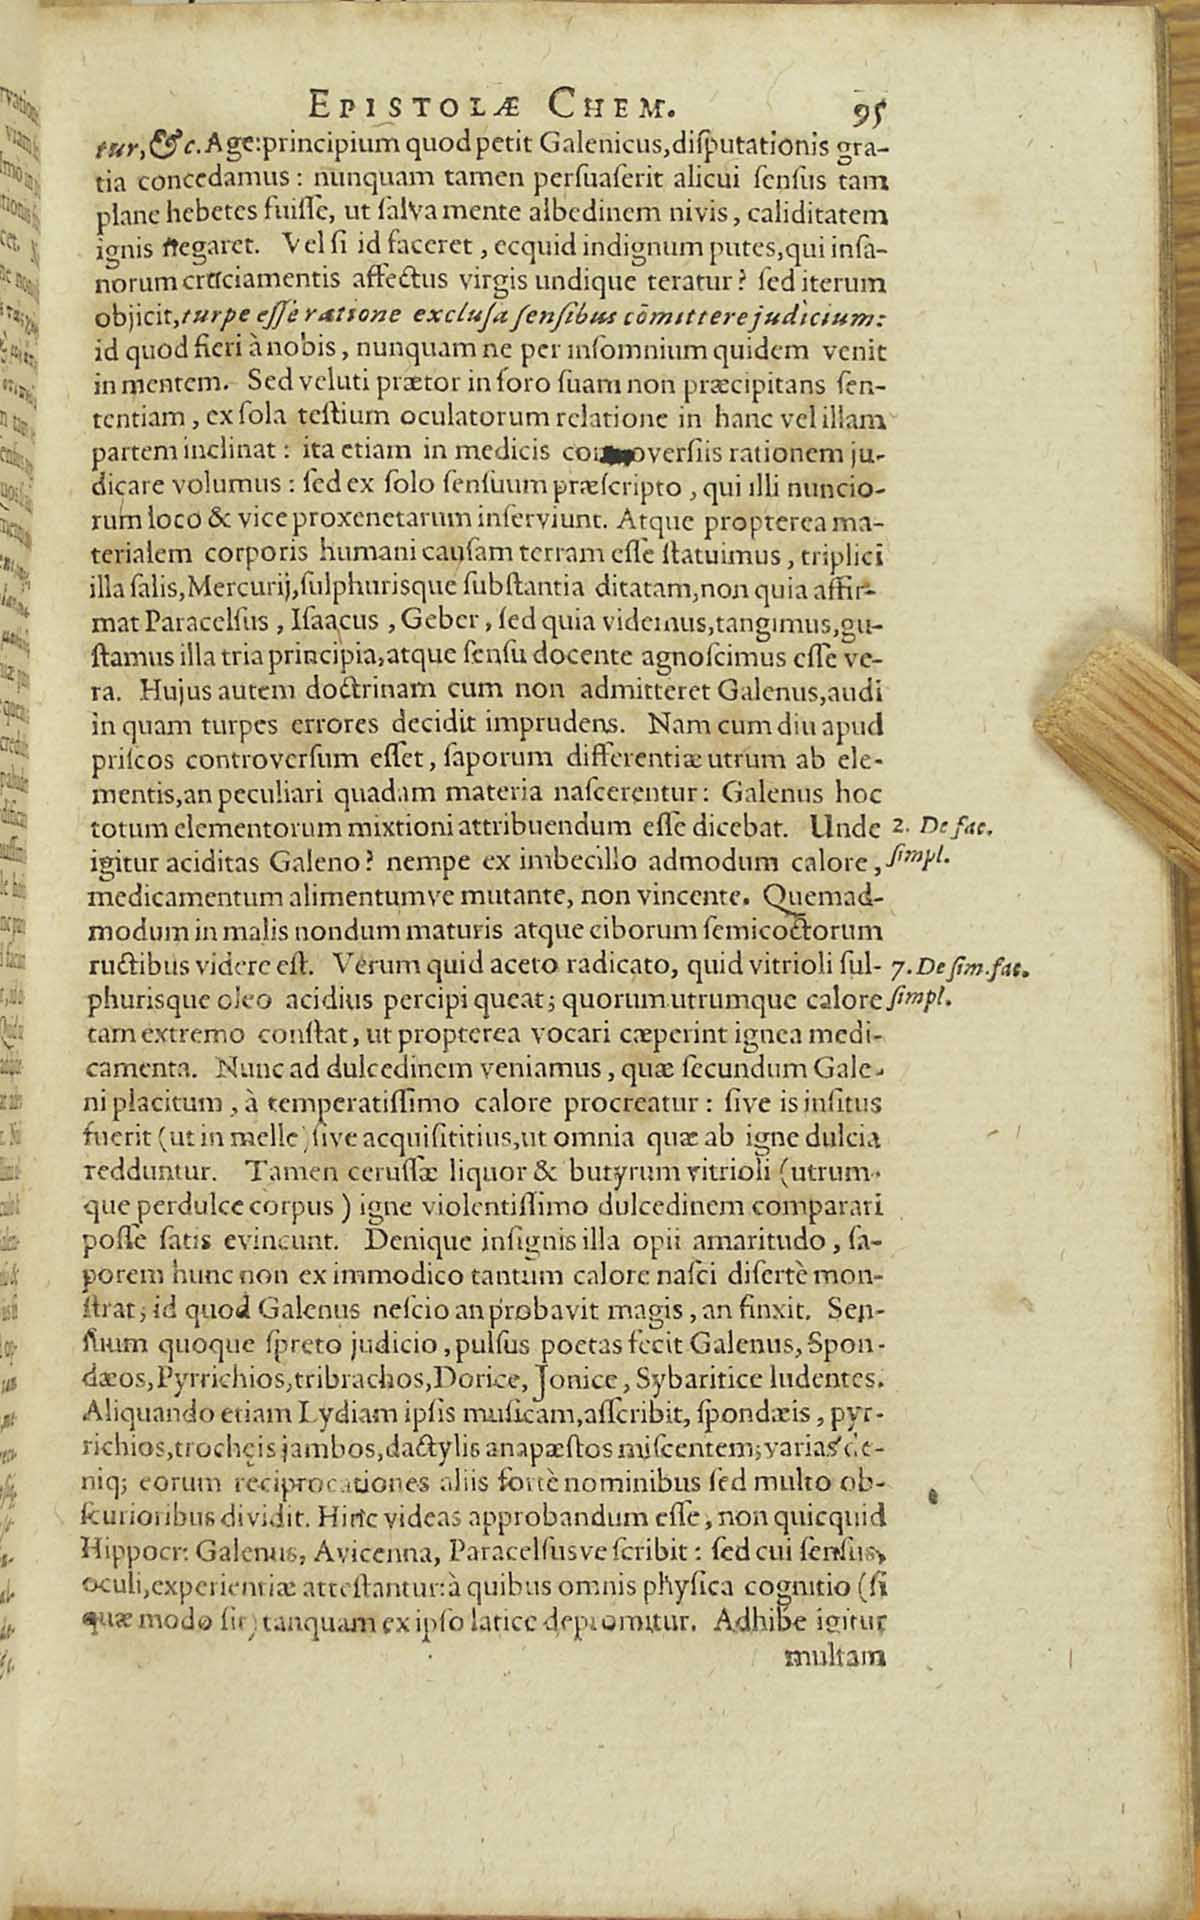 EPISTOLÆ CHEM. 95
tur, &c. Age: principium quod petit Galenicus, diſputationis gra-
tia concedamus: nunquam tamen perſuaſerit alicui ſenſus tam
plane hebetes fuiſſe, ut ſalva mente albedinem nivis, caliditatem
ignis negaret. Vel ſi id faceret, ecquid indignum putes, qui inſa-
norum cruciamentis affectus virgis undique teratur? ſed iterum
objicit, turpe eſſe ratione excluſa ſenſibus cõmittere judicium:
id quod fieri à nobis, nunquam ne per inſomnium quidem venit
in mentem. Sed veluti prætor in foro ſuam non præcipitans ſen-
tentiam, ex ſola teſtium oculatorum relatione in hanc vel illam
partem inclinat: ita etiam in medicis controverſiis rationem ju-
dicare volumus: ſed ex ſolo ſenſuum præſcripto, qui illi nuncio-
rum loco & vice proxenetarum inſerviunt. Atque propterea ma-
terialem corporis humani cauſam terram eſſe ſtatuimus, triplici
illa ſalis, Mercurij, ſulphurisque ſubſtantia ditatam, non quia affir-
mat Paracelſus, Iſaacus, Geber, ſed quia videmus, tangimus, gu-
ſtamus illa tria principia, atque ſenſu docente agnoſcimus eſſe ve-
ra. Hujus autem doctrinam cum non admitteret Galenus, audi
in quam turpes errores decidit imprudens. Nam cum diu apud
priſcos controverſum eſſet, ſaporum differentiæ utrum ab ele-
mentis, an peculiari quadam materia naſcerentur: Galenus hoc
totum elementorum mixtioni attribuendum eſſe dicebat. Unde
2. De fac.
igitur aciditas Galeno? nempe ex imbecillo admodum calore,
ſimpl.
medicamentum alimentumve mutante, non vincente. Quemad-
modum in malis nondum maturis atque ciborum ſemicoctorum
ructibus videre eſt. Verum quid aceto radicato, quid vitrioli ſul-
7. De ſim. fac.
phurisque oleo acidius percipi queat; quorum utrumque calore
ſimpl.
tam extremo conſtat, ut propterea vocari cæperint ignea medi-
camenta. Nunc ad dulcedinem veniamus, quæ ſecundum Gale-
ni placitum, à temperatiſſimo calore procreatur: ſive is inſitus
fuerit (ut in melle) ſive acquiſititius, ut omnia quæ ab igne dulcia
redduntur. Tamen ceruſſæ liquor & butyrum vitrioli (utrum-
que perdulce corpus) igne violentiſſimo dulcedinem comparari
poſſe ſatis evincunt. Denique inſignis illa opii amaritudo, ſa-
porem hunc non ex immodico tantum calore naſci diſertè mon-
ſtrat; id quod Galenus neſcio an probavit magis, an finxit. Sen-
ſuum quoque ſpreto judicio, pulſus poetas fecit Galenus, Spon-
dæos, Pyrrichios, tribrachos, Dorice, Jonice, Sybaritice ludentes.
Aliquando etiam Lydiam ipſis muſicam, aſſcribit, ſpondæis, pyr-
richios, trochęis jambos, dactylis anapæſtos miſcentem; varias de-
niq; eorum reciprocationes aliis fortè nominibus ſed multo ob-
ſcurioribus dividit. Hinc videas approbandum eſſe, non quicquid
Hippocr: Galenus, Avicenna, Paracelſusve ſcribit: ſed cui ſenſus,
oculi, experientiæ atteſtantur: à quibus omnis phyſica cognitio (ſi
quæ modo ſit) tanquam ex ipſo latice depromitur. Adhibe igitur
multam